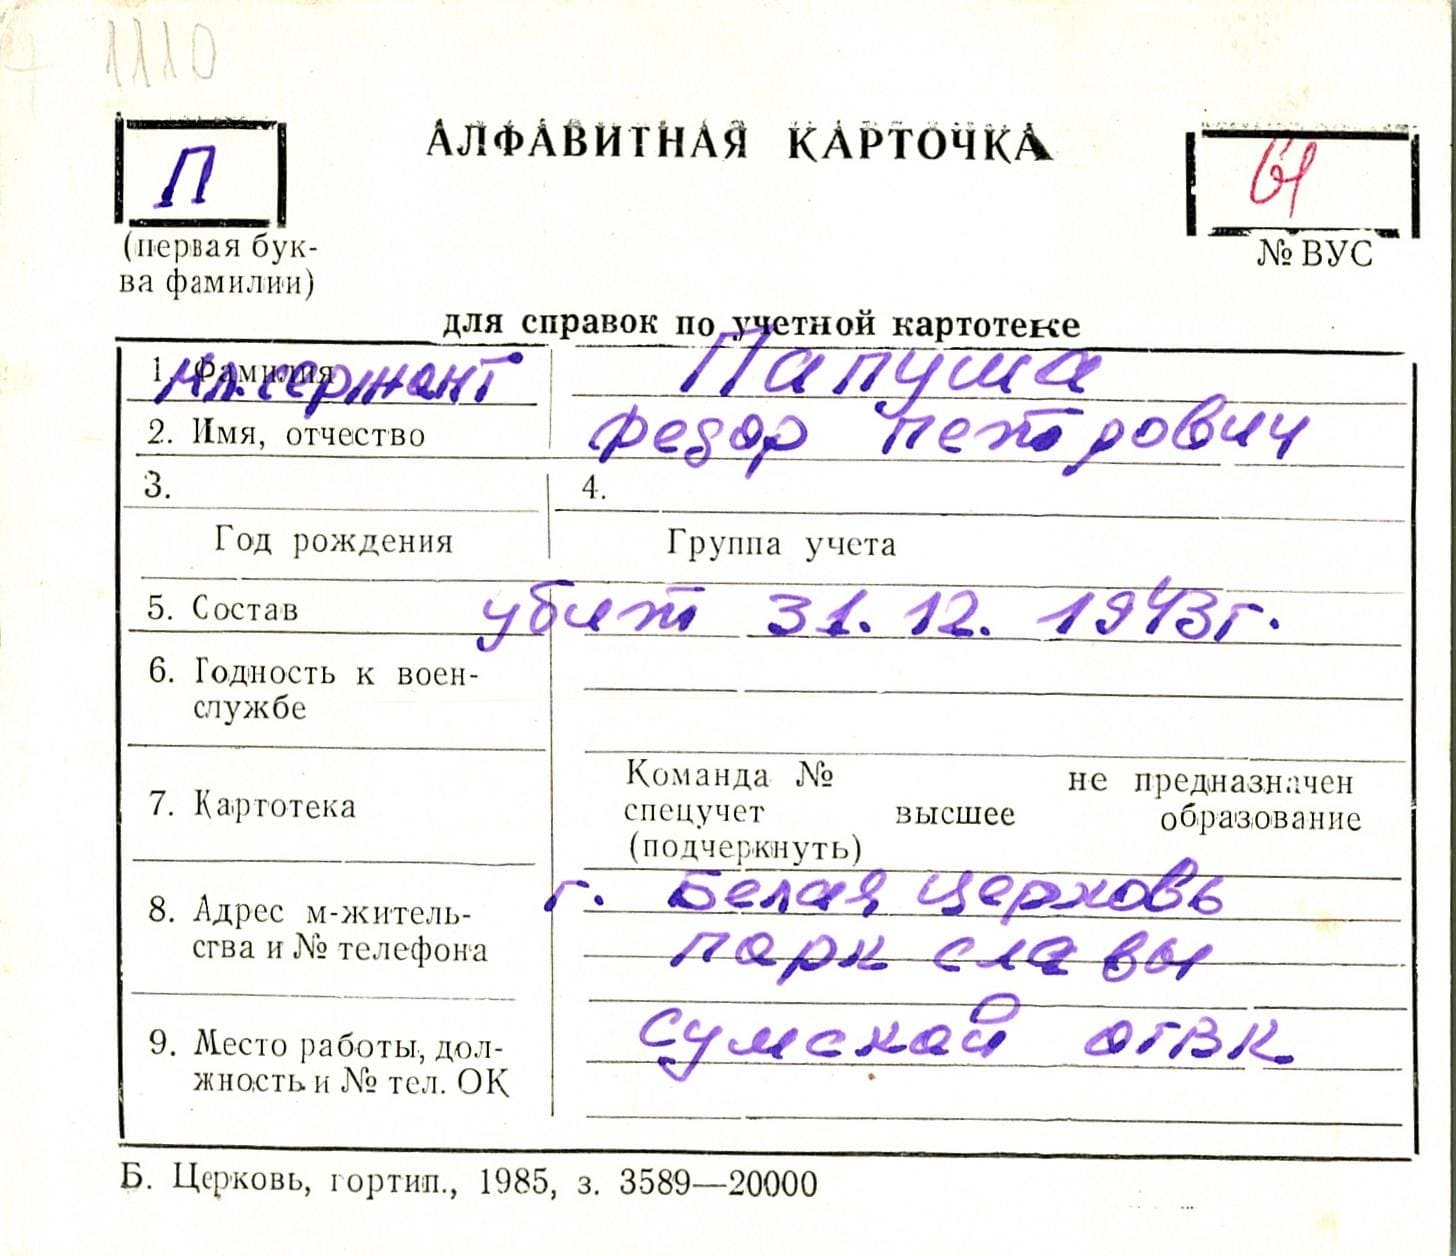 1110
П
АЛФАВИТНАЯ КАРТОЧКА
61
(первая бук-
ва фамилии)
№ ВУС
для справок по учетной картотеке
1. Фамилия мл. сержант Папуша
2. Имя, отчество Федор Петрович
3. 4.
Год рождения Группа учета
5. Состав убит 31.12.1943г.
6. Годность к воен-
службе
7. Картотека
Команда № не предназначен
спецучет высшее образование
(подчеркнуть)
8. Адрес м-житель-
ства и № телефона
г. Белая церковь
парк славы
9. Место работы, дол-
жность и № тел. ОК
Сумской ОГВК
Б. Церковь, гортип., 1985, з. 3589—20000